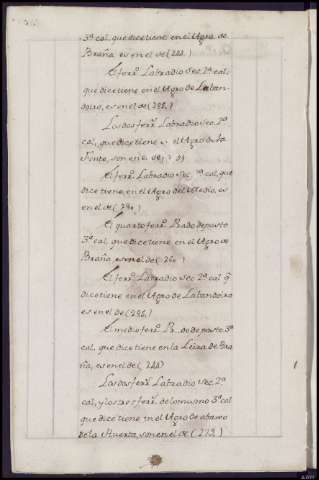 3.ª cal. que dice tiene en el Agro de
Braña, es en el de (288.)
El ferr.º Labradio Sec.º 2.ª cal.
que dice tiene en el Agro de Latan-
doiro, es en el de (288.)
Los dos ferr.º Labradio Sec.º 2.ª
cal. que dice tiene en el Agro de la
Fonte, son en el de
El ferr.º Labradio Sec.º cal. que
dice tiene en el Agro del Medio, es
en el de (280.)
El quarto ferr.º Prado de pasto
3.ª cal. que dice tiene en el Agro de
Braña, es en el de (280.)
El ferr.º Labradio Sec.º 2.ª cal. q.
dice tiene en el Agro de Latandoiro
es en el de (286.)
El medio ferr.º Prado de pasto 3.ª
cal. que dice tiene en la Leira de Bra-
ña, es en el de (288)
Los dos ferr.º Labradio Sec.º 2.ª
cal. y los tres ferr.º de lo mismo 3.ª cal.
que dice tiene en el Agro de abaxo
de la Huerta, son en el de (292.)